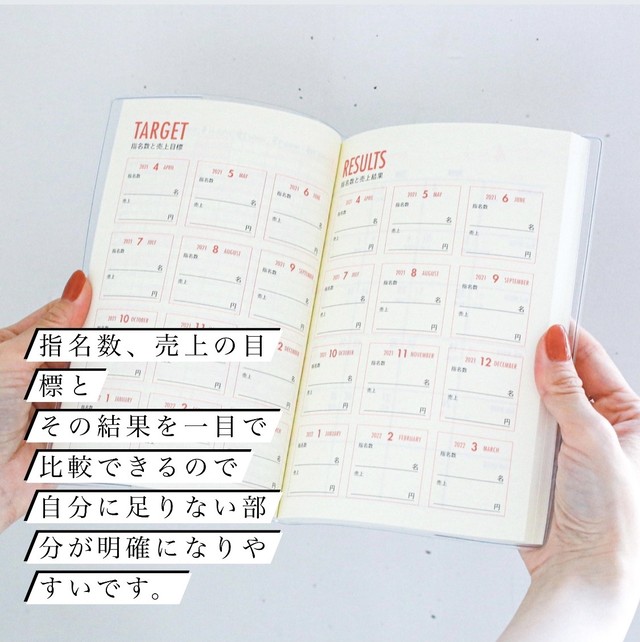 TARGET
指名数と売上目標
2021 4 APRIL
指名数
名
売上
円
2021 5 MAY
指名数
名
売上
円
2021 6 JUNE
指名数
名
売上
円
2021 7 JULY
指名数
名
売上
円
2021 8 AUGUST
指名数
名
売上
円
2021 9 SEPTEMBER
指名数
名
売上
円
10 OCTOBER
名
円
RESULTS
指名数と売上結果
2021 4 APRIL
指名数
名
売上
円
2021 5 MAY
指名数
名
売上
円
2021 6 JUNE
指名数
名
売上
円
2021 7 JULY
指名数
名
売上
円
2021 8 AUGUST
指名数
名
売上
円
2021 9 SEPTEMBER
指名数
名
売上
円
2021 10 OCTOBER
指名数
名
売上
円
2021 11 NOVEMBER
指名数
名
売上
円
2021 12 DECEMBER
指名数
名
売上
円
2022 1 JANUARY
指名数
名
売上
円
2022 2 FEBRUARY
指名数
名
売上
円
2022 3 MARCH
指名数
名
売上
円
指名数、売上の目
標と
その結果を一目で
比較できるので
自分に足りない部
分が明確になりや
すいです。